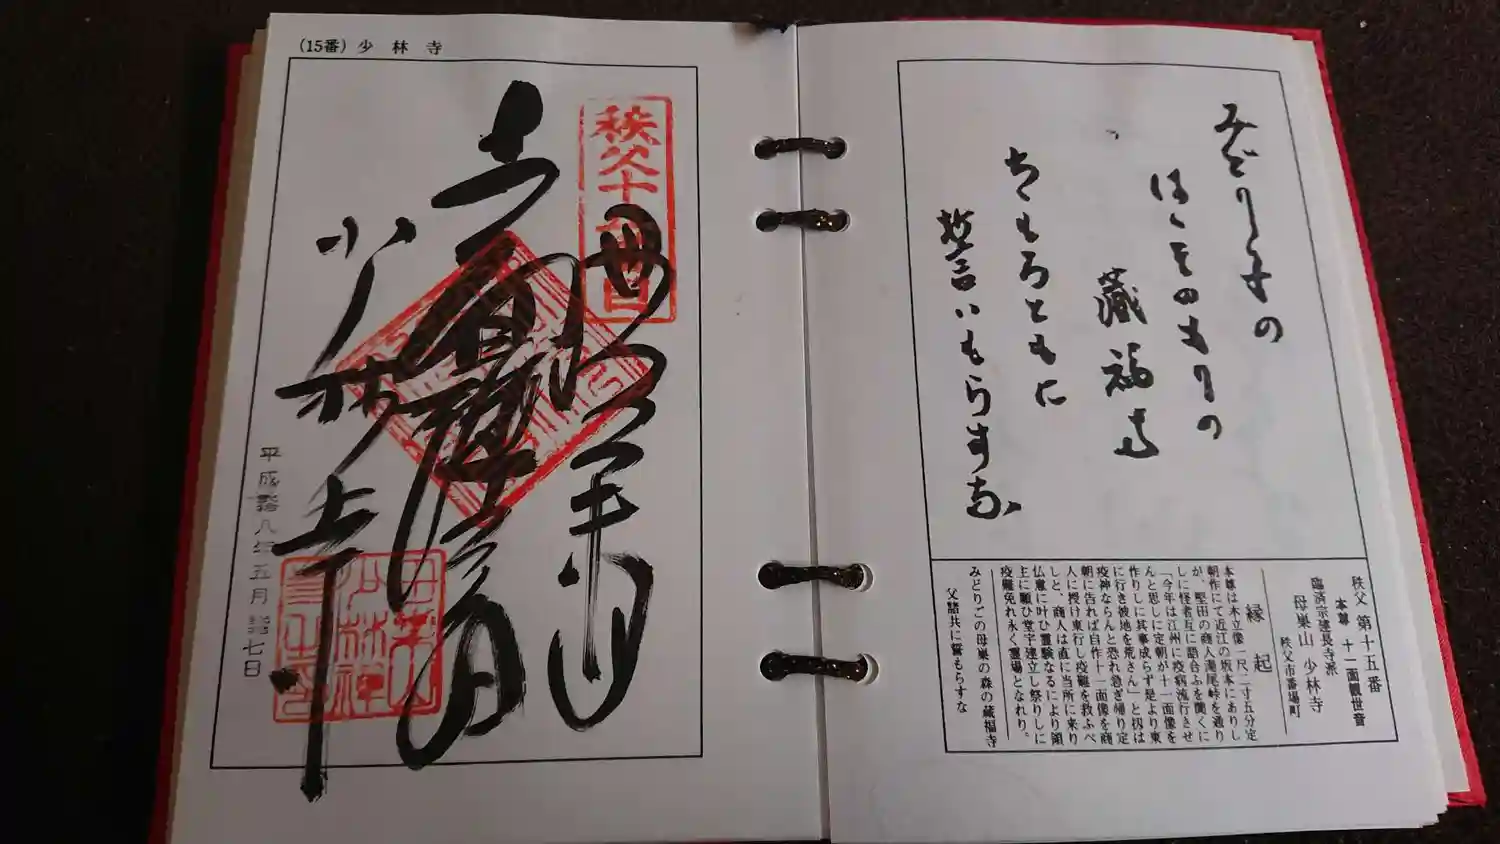 (15番) 少林寺
秩父十五番
少林寺
平成廿八年五月廿七日
みどり子の
はゝその もりの
蔵福寺
ちちもろともに
誓いもらすな
秩父 第十五番
本尊 十一面観世音
臨済宗建長寺派
母巣山 少林寺
秩父市番場町
縁起
本尊は木立像一尺二寸五分定
朝作にて近江の坂本にありし
が、堅田の商人滝尾峠を通り
しに怪者互に語合ふを聞くに
「今年は江州に疫病流行させ
んと思しに定朝が十一面像を
作りしに其事成らず是より東
に行き彼地を荒さん」と扨は
疫神ならんと恐れ急ぎ帰り定
朝に告れば自作十一面像を商
人に授け東行し疫難を救ふべ
しと、商人は直に当所に来り
仏意に叶ひ霊験なるにより領
主に願ひ堂宇建立し祭りしに
疫難免れ永く霊場となれり。
みどりごの母巣の森の蔵福寺
父諸共に誓もらすな